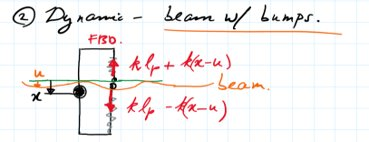 ② Dynamic - beam w/ bumps.
FBD.
klp + k(x-u)
u
x
beam.
klp - k(x-u)